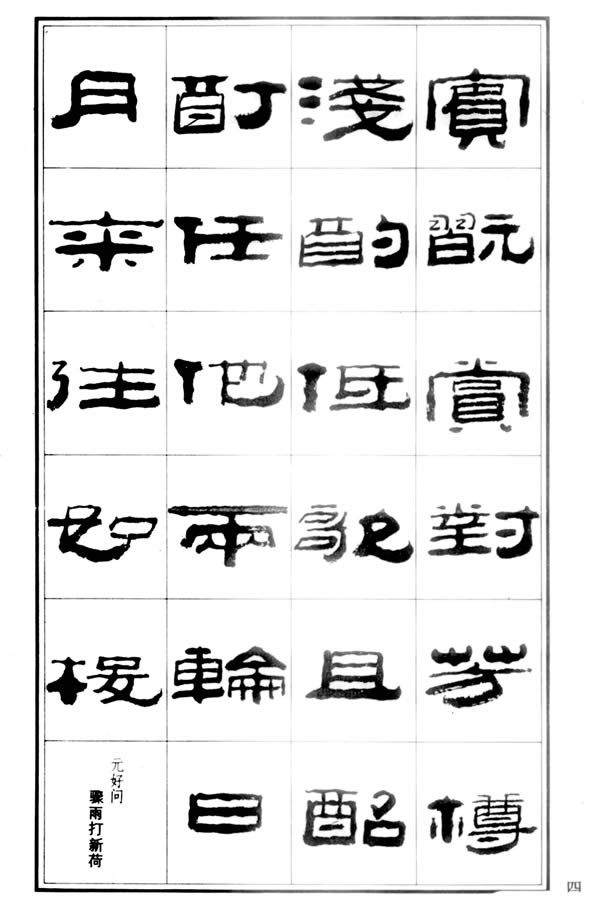 賓翫賞對芳樽
淺酌低歌且酩
酊任他兩輪日
月来往如梭
元好问
骤雨打新荷
四